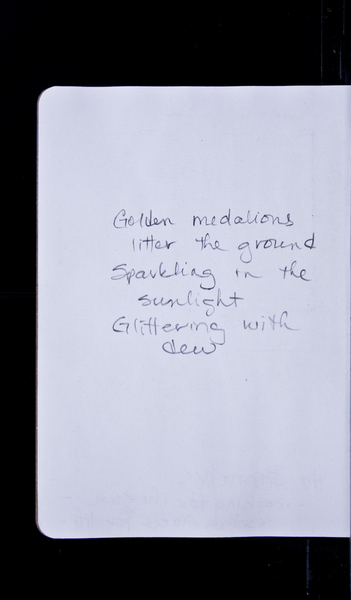 Golden medalions
litter the ground
Sparkling in the
sunlight
Glittering with
dew